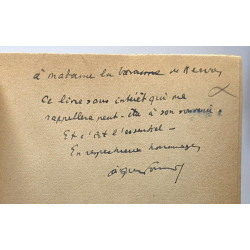 à madame la baronne de
Ce livre sans intérêt qui me
rappellera peut-être à son souvenir.
Et c'est l'essentiel –
En respectueux hommages